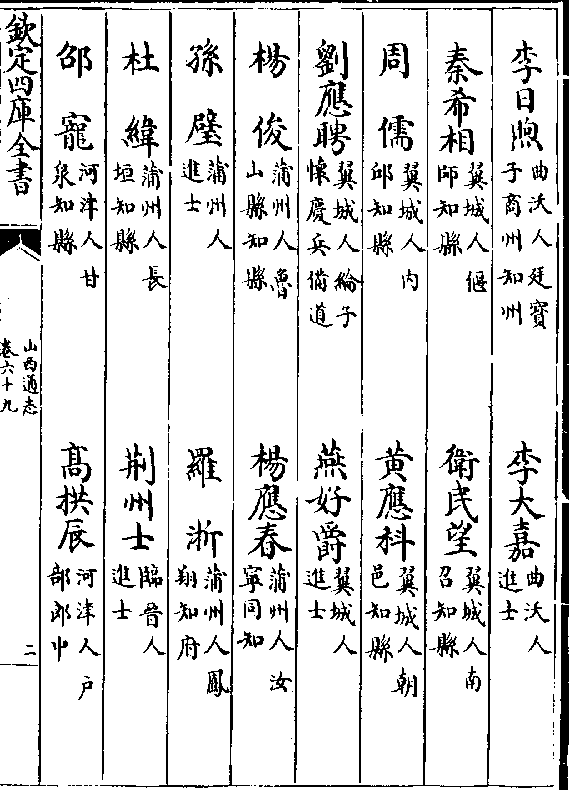 李日煦曲沃人廷寶子商州知州 李大嘉曲沃人進士
秦希相翼城人偃師知縣 衛民望翼城人南召知縣
周儒翼城人内邱知縣 黄應科翼城人朝邑知縣
劉應聘翼城人綸子懷慶兵備道 燕好爵翼城人進士
楊俊蒲州人魯山縣知縣 楊應春蒲州人汝寧同知
孫璧蒲州人進士 羅浙蒲州人鳳翔知府
杜緯蒲州人長垣知縣 荆州士臨晉人進士
邵寵河津人甘泉知縣 髙拱辰河津人户部郎中
欽定四庫全書
山西通志
卷六十九
二